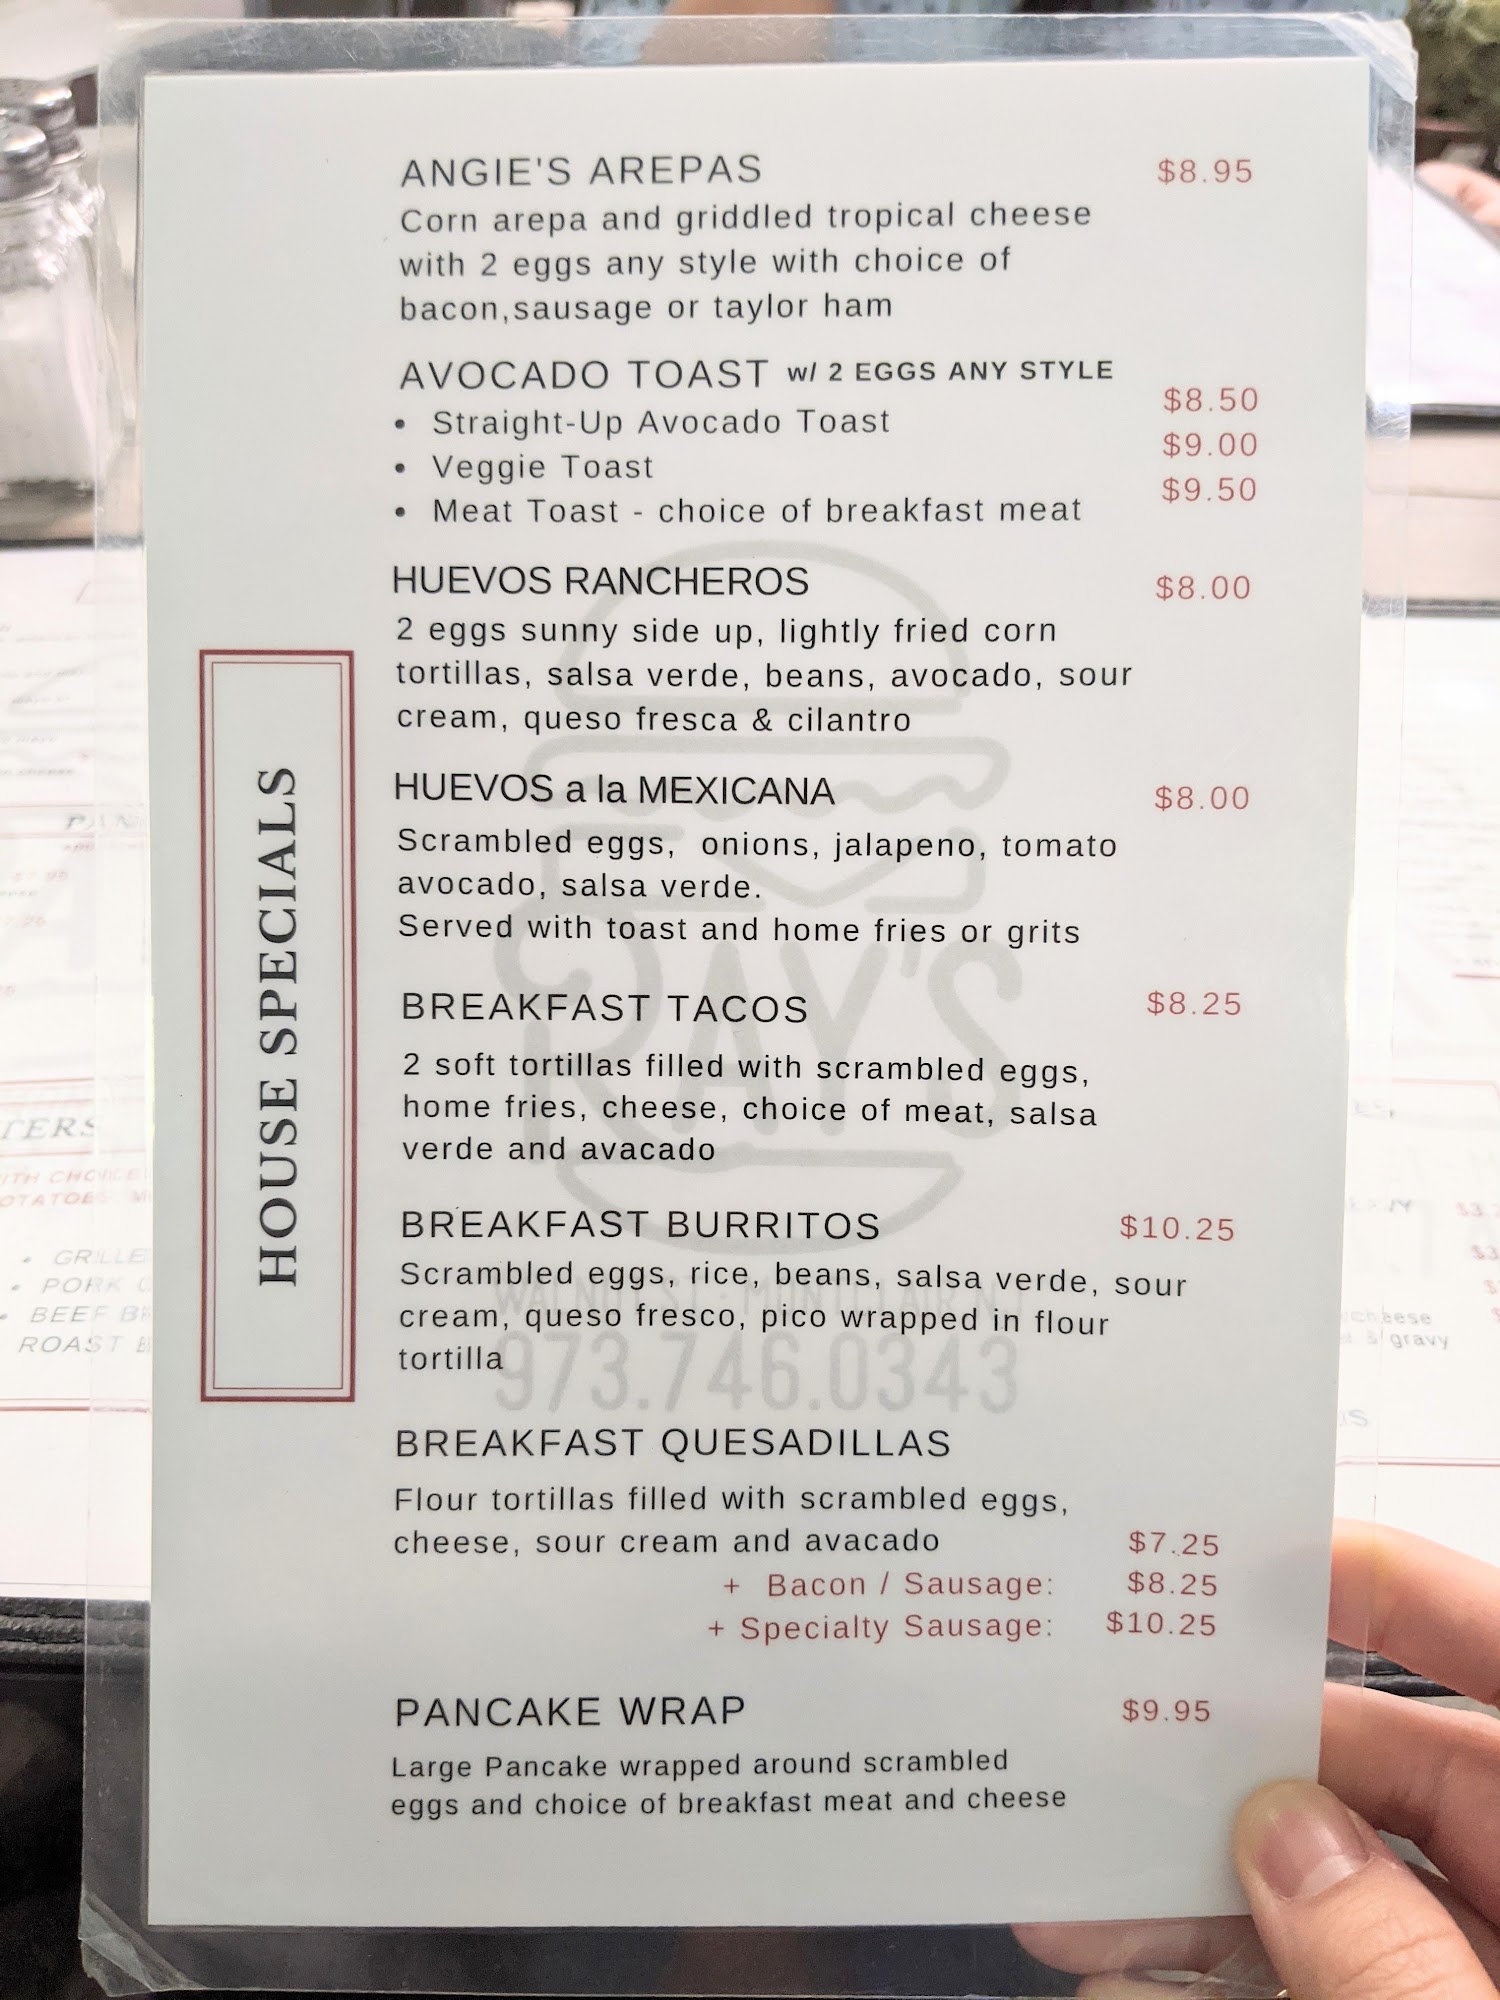 ANGIE'S AREPAS $8.95
Corn arepa and griddled tropical cheese
with 2 eggs any style with choice of
bacon,sausage or taylor ham
AVOCADO TOAST w/ 2 EGGS ANY STYLE
• Straight-Up Avocado Toast $8.50
• Veggie Toast $9.00
• Meat Toast - choice of breakfast meat $9.50
HUEVOS RANCHEROS $8.00
2 eggs sunny side up, lightly fried corn
tortillas, salsa verde, beans, avocado, sour
cream, queso fresca & cilantro
HUEVOS a la MEXICANA $8.00
Scrambled eggs, onions, jalapeno, tomato
avocado, salsa verde.
Served with toast and home fries or grits
BREAKFAST TACOS $8.25
2 soft tortillas filled with scrambled eggs,
home fries, cheese, choice of meat, salsa
verde and avacado
BREAKFAST BURRITOS $10.25
Scrambled eggs, rice, beans, salsa verde, sour
cream, queso fresco, pico wrapped in flour
tortilla
BREAKFAST QUESADILLAS
Flour tortillas filled with scrambled eggs,
cheese, sour cream and avacado $7.25
+ Bacon / Sausage: $8.25
+ Specialty Sausage: $10.25
PANCAKE WRAP $9.95
Large Pancake wrapped around scrambled
eggs and choice of breakfast meat and cheese
HOUSE SPECIALS
RAY'S
WALNUT ST · MONTCLAIR NJ
973.746.0343
• PORK
• BEEF
ROAST
gravy